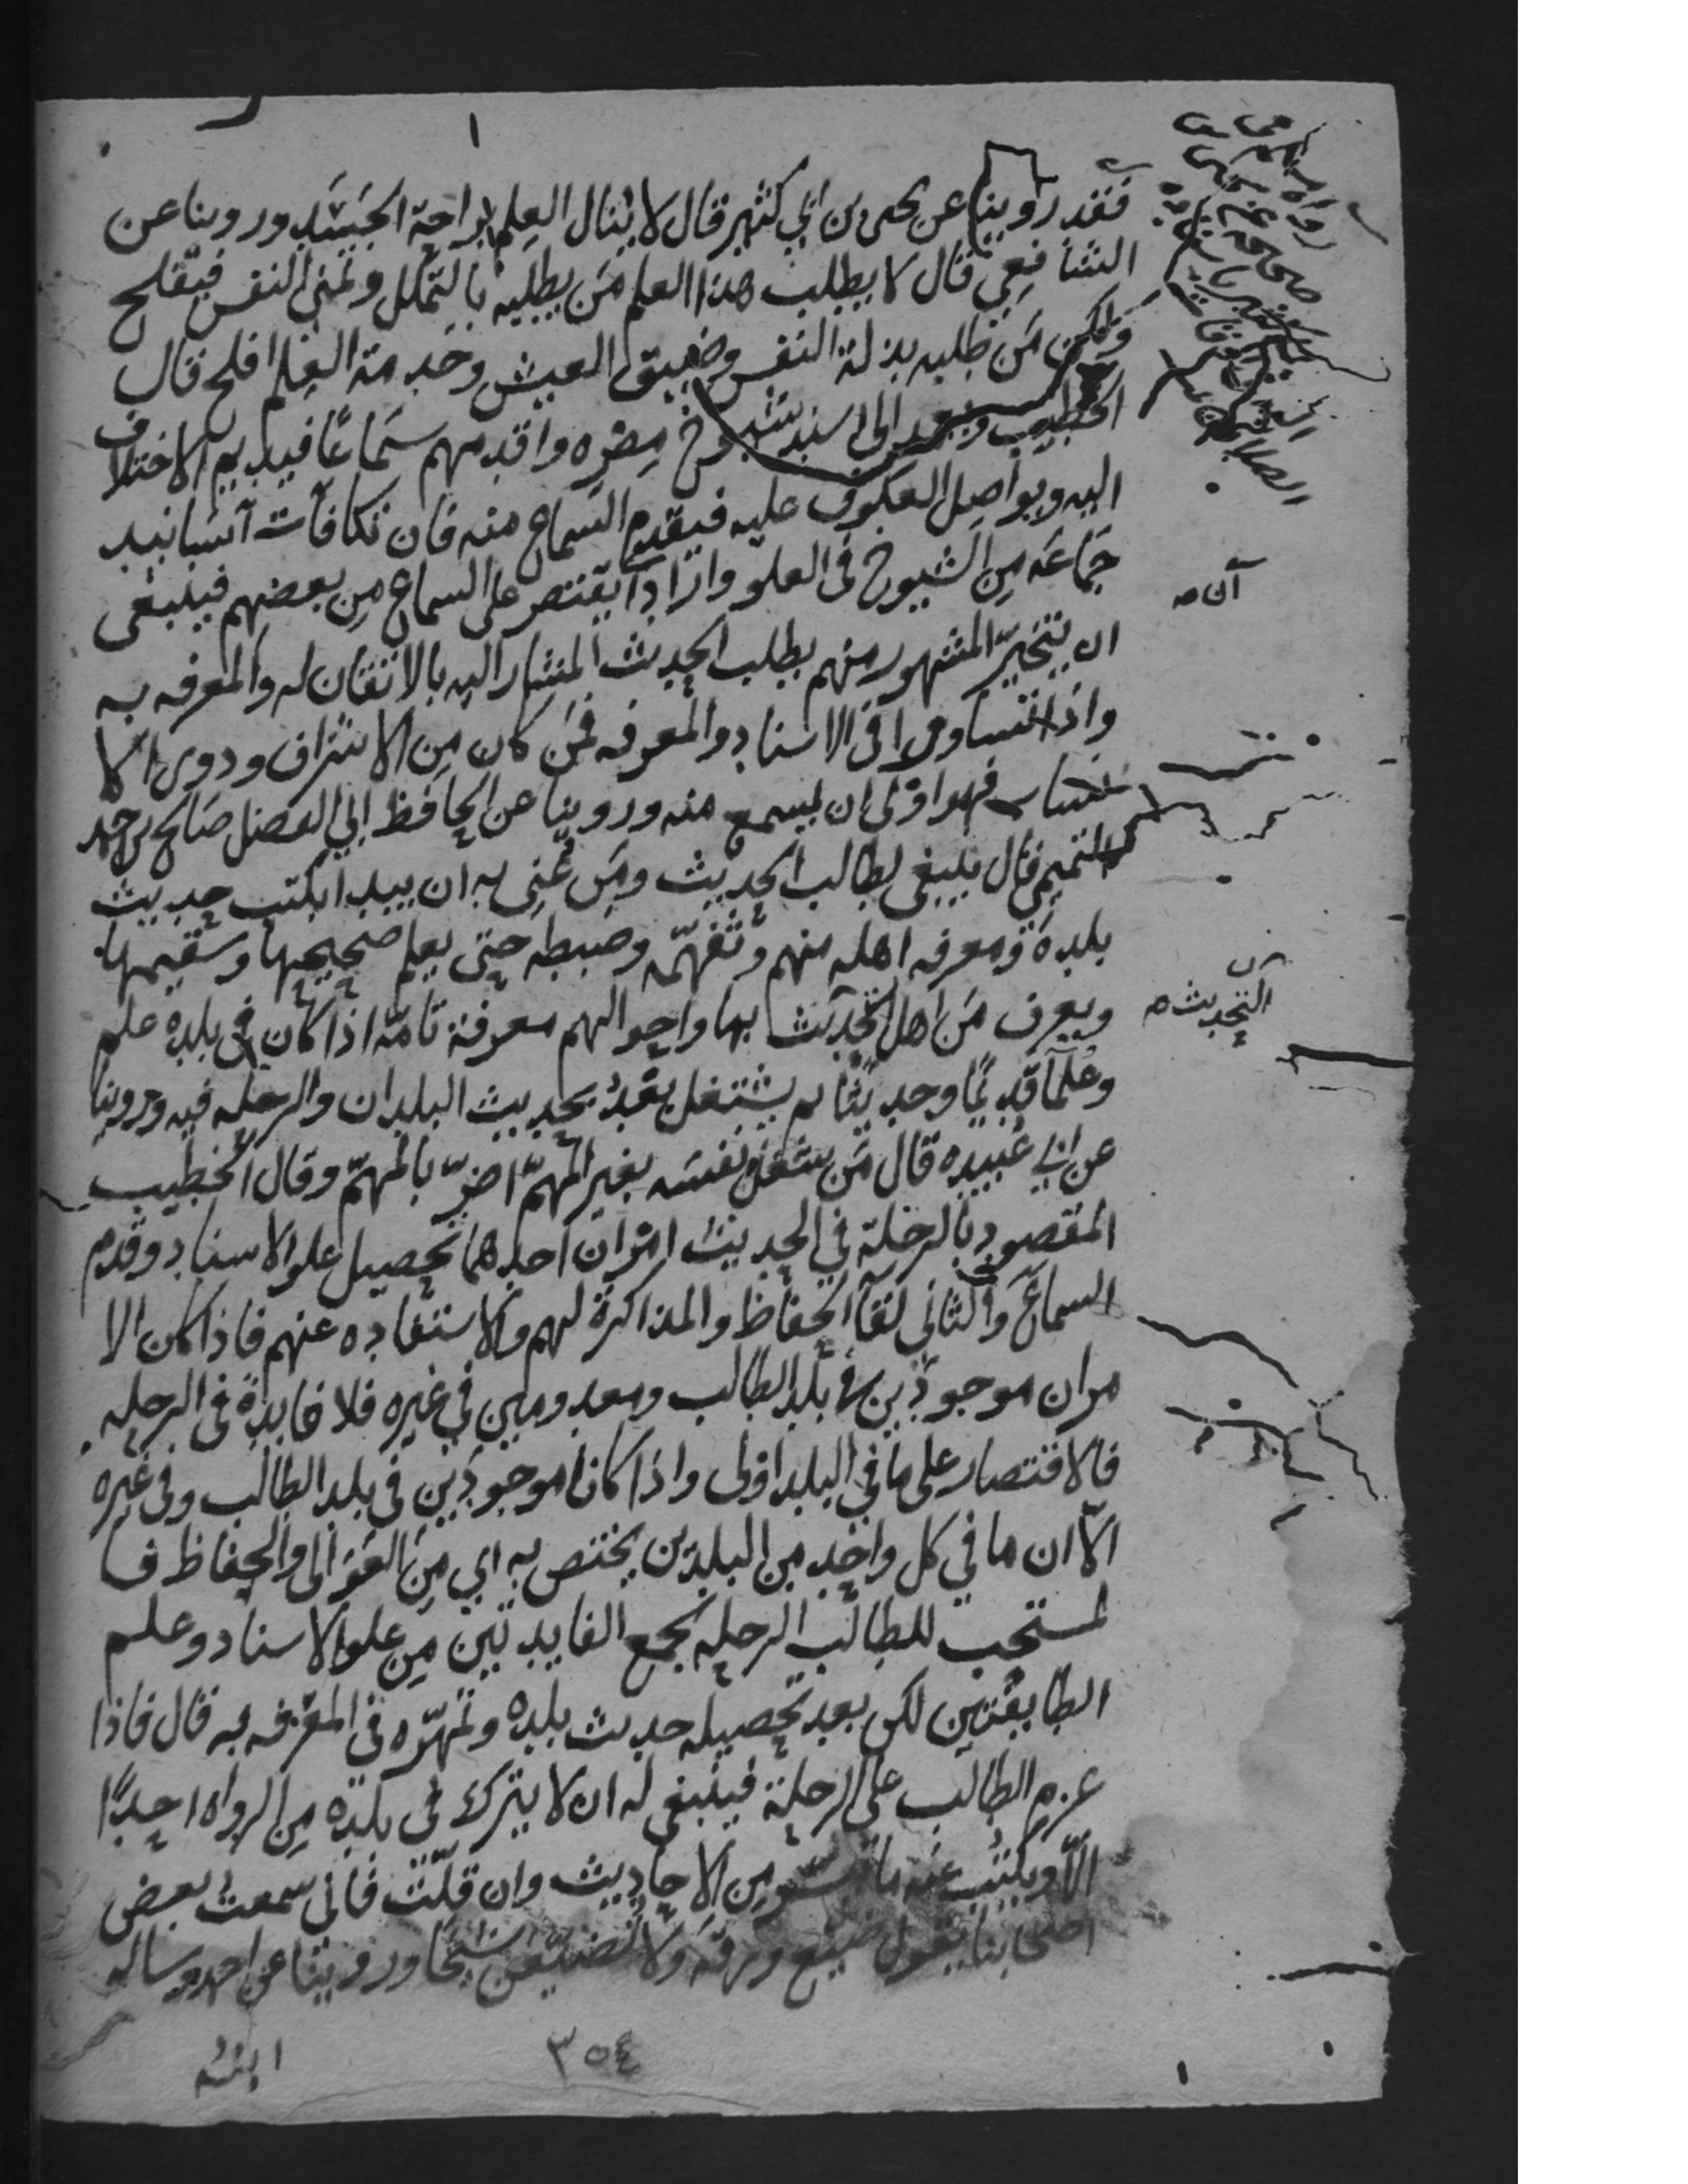 فقد روينا عن يحيى بن ابي كثير قال لا ينال العلم براحة الجسد وروينا عن
الشافعي قال لا يطلب هذا العلم من يطلبه بالتملل وغنى النفس فيفلح
ولكن من طلبه بذلة النفس وضيق العيش وخدمة العلم افلح قال
الخطيب ويعمد الى اسند شيوخ مصره واقدمهم سماعا فيديم الاختلاف
اليه ويواصل العكوف عليه فيقدم السماع منه فان تكافأت آسانيد
جماعه من الشيوخ في العلو واراد آ يقتصر على السماع من بعضهم فينبغي
ان يتخير المشهور منهم بطلب الحديث المشار اليه بالاتقان له والمعرفه به
واذا تساووا في الاسناد والمعرفه فمن كان من الاشراف وذوي الا
نساب فهو اولى ان يسمع منه وروينا عن الحافظ ابي الفضل صالح بن احمد
التميمي قال ينبغي لطالب الحديث ومن عني به ان يبدا بكتب حديث
بلده ومعرفه اهله منهم وتفهمه وضبطه حتى يعلم صحيحها وسقيمها
ويعرف من اهل التحديث بها واحوالهم معرفة تامة اذا كان في بلده علم
وعلما قديما وحديثا ثم يشتغل بعد بحديث البلدان والرحله فيه وروينا
عن ابي عبيده قال من شغل نفسه بغير المهم اضر بالمهم وقال الخطيب
المقصود بالرحلة في الحديث امران احدهما تحصيل علو الاسناد وقدم
السماع والثاني لقا الحفاظ والمذاكرة لهم والاستفاده عنهم فاذا كان الا
مران موجودين في بلد الطالب ومعدومين في غيره فلا فايدة في الرحله
فالاقتصار على ما في البلد اولى واذا كانا موجودين في بلد الطالب وفي غيره
الا ان ما في كل واحد من البلدين يختص به اي من العوالي والحفاظ فا
لمستحب للطالب الرحله لجمع الفايدتين من علو الاسناد وعلم
الطايفتين لكن بعد تحصيله حديث بلده وتمهره في المعرفه به قال فاذا
عزم الطالب على الرحلة فينبغي له ان لا يترك في بلده من الرواه احدا
الا ويكتب عنه ما تيسر من الاحاديث وان قلت فاني سمعت بعض
اصحابنا يقول ضيع ورقه ولا تضيعن شيخا وروينا عن احمد وساله
آن صه
التحديث صه
ابنه
٣٥٤